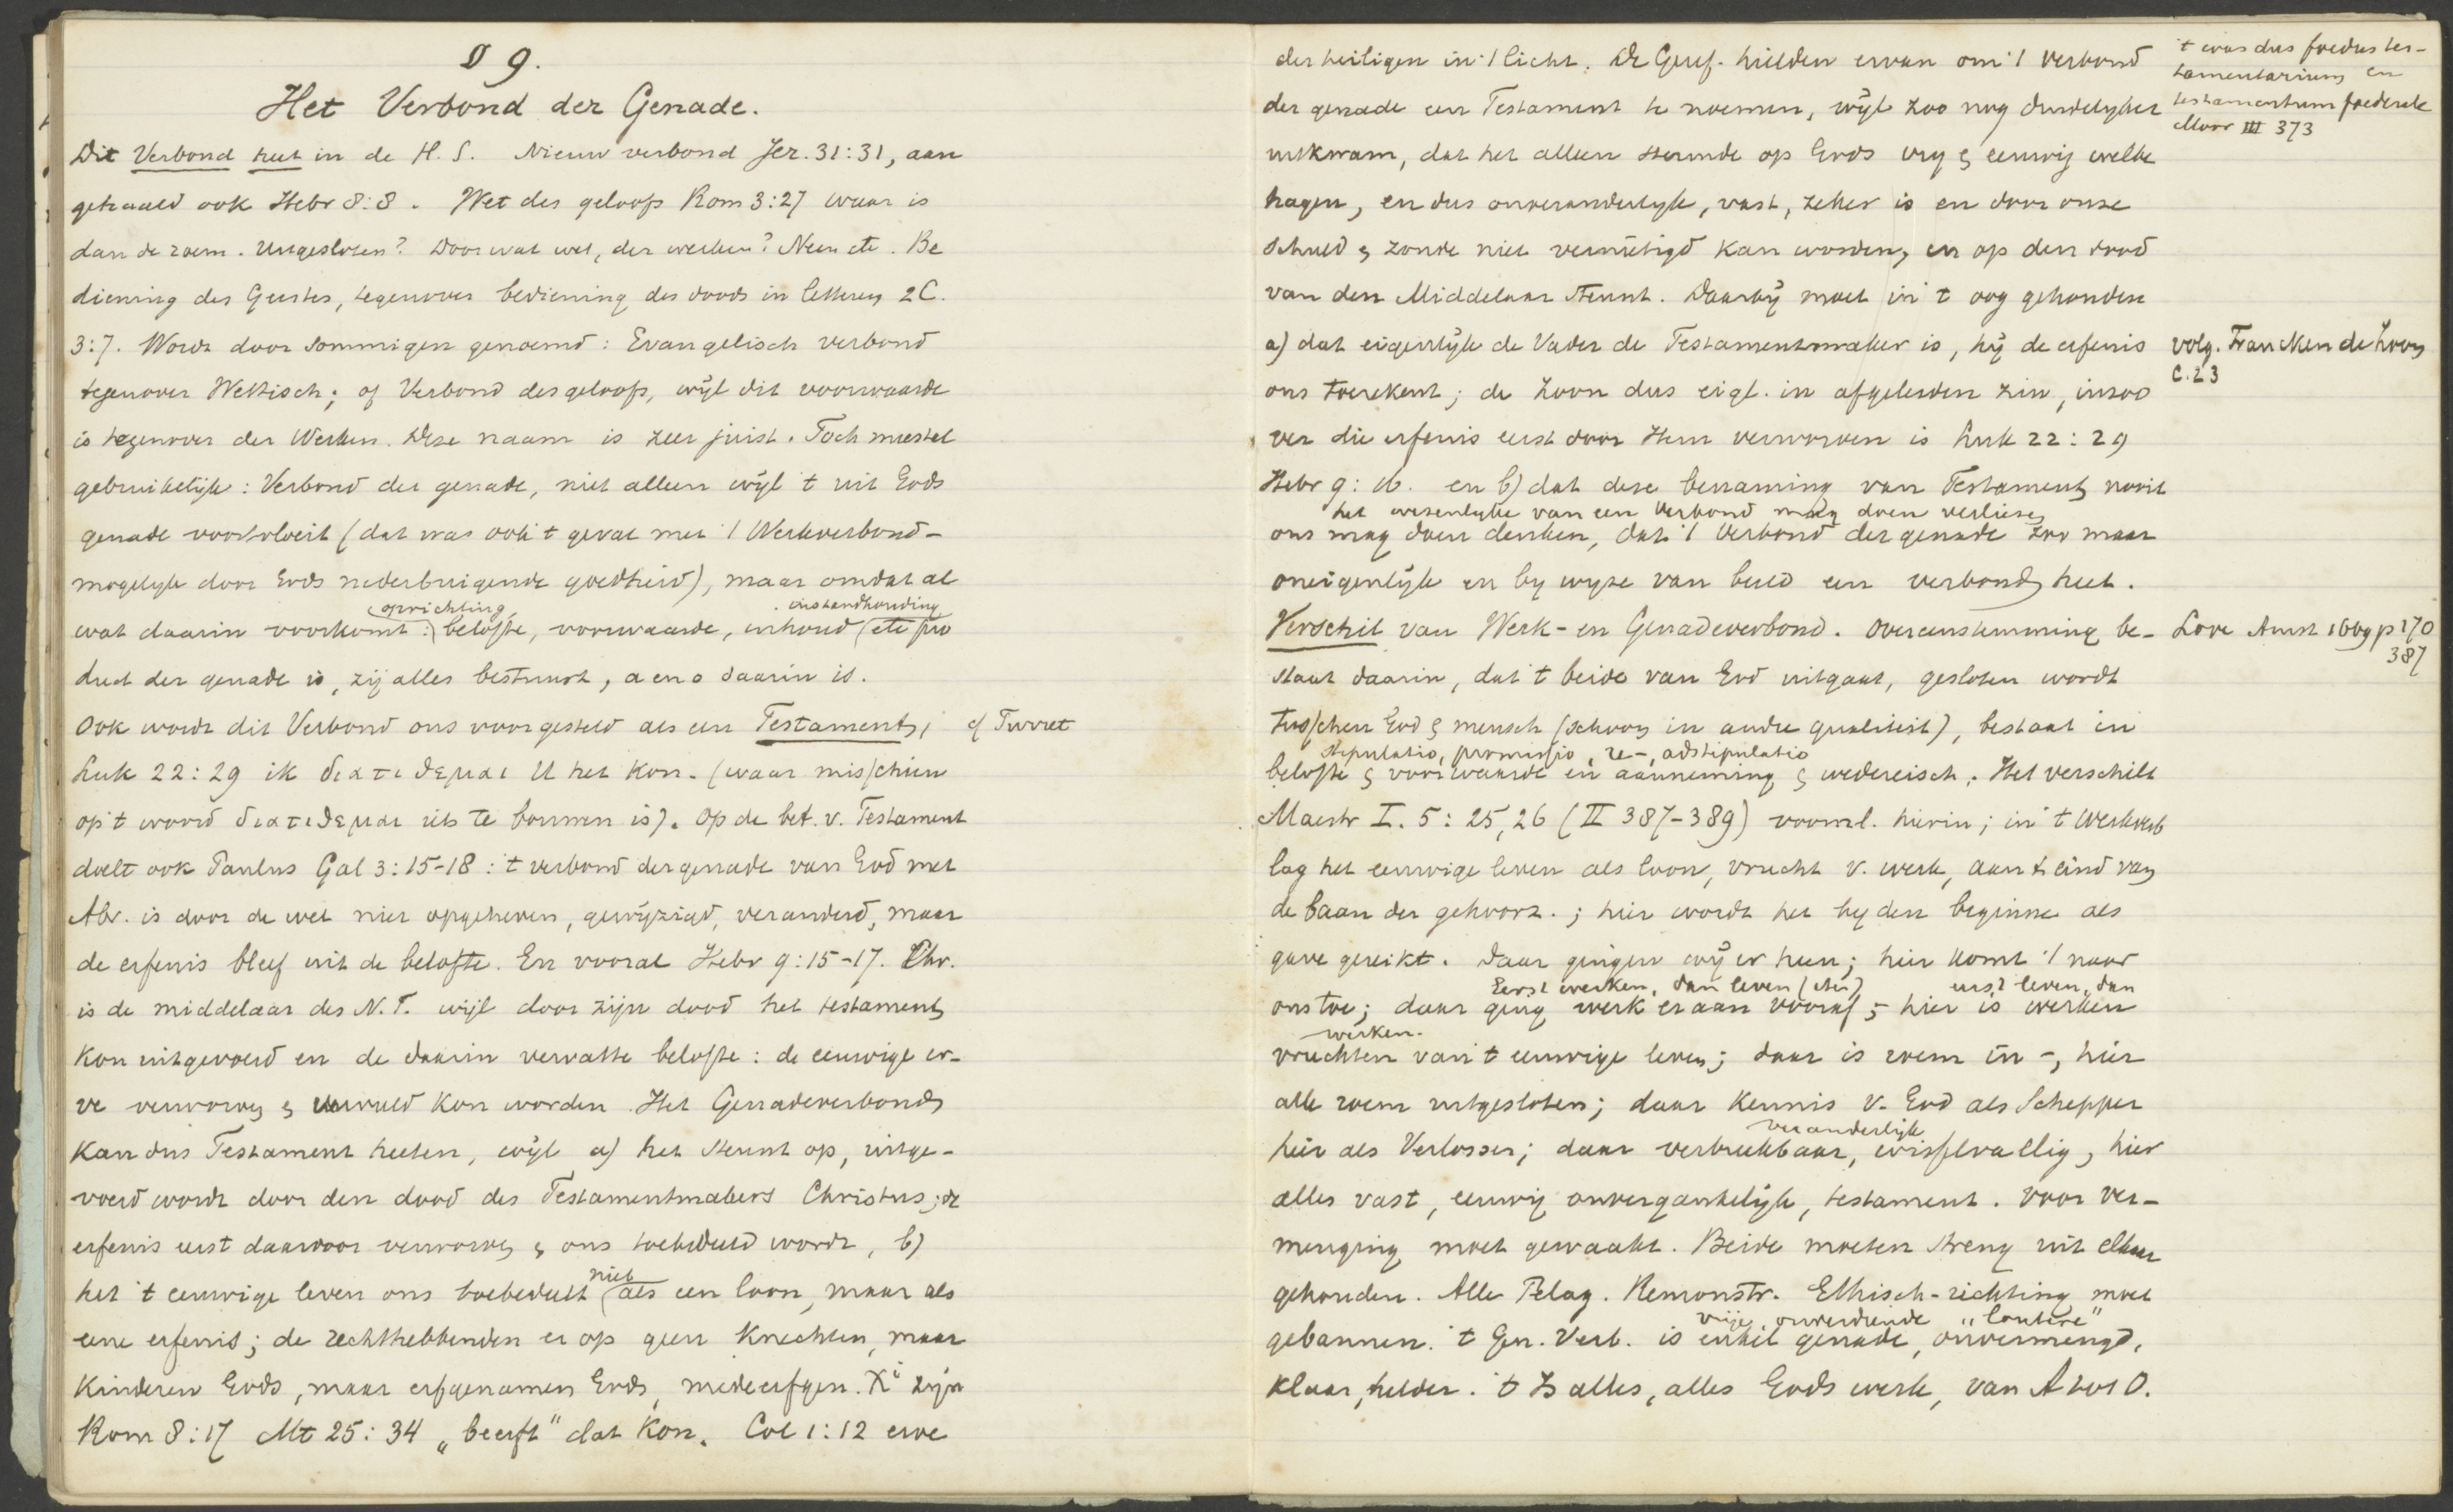 § 9.
Het Verbond der Genade.
Dit Verbond heet in de H. S. Nieuw verbond Jer. 31:31, aan
gehaald ook Hebr 8:8. Wet des geloofs Rom 3:27 waar is
dan de roem. Uitgesloten? Door wat wet, der werken? Neen etc. Be
diening des Geestes, tegenover bediening des doods in letteren 2 C.
3:7. Wordt door sommigen genoemd: Evangelisch verbond
tegenover Wettisch; of Verbond des geloofs, wijl dit voorwaarde
is tegenover der Werken. Deze naam is zeer juist. Toch meestal
gebruikelijk: Verbond der genade, niet alleen wijl 't uit Gods
genade voortvloeit (dat was ook 't geval met 't Werkverbond -
mogelyk door Gods nederbuigende goedheid), maar omdat al
oprichting, instandhouding
wat daarin voorkomt: belofte, voorwaarde, inhoud etc pro
duct der genade is, zij alles bestuurt, a en o daarin is.
Ook wordt dit Verbond ons voorgesteld als een Testament, cf Turret
Luk 22:29 ik διατιθεμαι U het Kon. (waar misschien
op 't woord διατιθεμαι iets te bouwen is). Op de bet. v. Testament
doelt ook Paulus Gal 3:15-18: 't verbond der genade van God met
Abr. is door de wet niet opgeheven, gewijzigd, veranderd, maar
de erfenis bleef uit de belofte. En vooral Hebr 9:15-17. Chr.
is de middelaar des N.T. wijl door zijn dood het testament
kon uitgevoerd en de daarin vervatte belofte: de eeuwige er-
ve verworven & vervuld kon worden. Het Genadeverbond
kan dus Testament heeten, wijl a) het steunt op, uitge-
voerd wordt door den dood des Testamentmakers Christus; de
erfenis eerst daardoor verworven & ons toebedeeld wordt, b)
het 't eeuwige leven ons toebedeelt niet als een loon, maar als
eene erfenis; de rechthebbenden er op geen knechten, maar
kinderen Gods, maar erfgenamen Gods, medeerfgen. Xi zijn
Rom 8:17 Mt 25:34 „beerft" dat Kon. Col 1:12 erve
der heiligen in 't licht. De Geref. hielden ervan om 't verbond
der genade een Testament te noemen, wijl zoo nog duidelyker
uitkwam, dat het alleen steunde op Gods vry & eeuwig welbe
hagen, en dus onveranderlyk, vast, zeker is en door onze
schuld & zonde niet vernietigd kan worden, en op den dood
van den Middelaar steunt. Daarbij moet in 't oog gehouden
a) dat eigenlijk de Vader de Testamentmaker is, hij de erfenis
ons toerekent; de Zoon dus eigl. in afgeleiden zin, inzoo
ver die erfenis eerst door Hem verworven is Luk 22:29
Hebr 9:16. en b) dat deze benaming van Testament nooit
het wezenlyke van een Verbond mag doen verliezen
ons mag doen denken, dat 't Verbond der genade zoo maar
oneigenlijk en by wyze van beeld een verbond heet.
Verschil van Werk- en Genadeverbond. Overeenstemming be-
staat daarin, dat 't beide van God uitgaat, gesloten wordt
tusschen God & mensch (schoon in andre qualiteit), bestaat in
stipulatio, promissio, re-, adstipulatio
belofte & voorwaarde en aanneming & wedereisch. Het verschilt
Maestr I. 5:25,26 (II 387-389) voornl. hierin; in 't Werkverb
lag het eeuwige leven als loon, vrucht v. werk, aan 't eind van
de baan der gehoorz.; hier wordt het by den beginne als
gave gereikt. Daar gingen wij er heen; hier komt 't naar
Eerst werken, dan leven eerst leven, dan
ons toe; daar ging werk eraan vooraf; hier is werken
werken.
vruchten van 't eeuwige leven; daar is roem in -, hier
alle roem uitgesloten; daar kennis v. God als Schepper
veranderlijk
hier als Verlosser; daar verbreekbaar, wisselvallig, hier
alles vast, eeuwig onvergankelijk, testament. Voor ver-
menging moet gewaakt. Beide moeten streng uit elkaar
gehouden. Alle Pelag. Remonstr. Ethisch-richting moet
vrije, onverdiende „loutere"
gebannen. 't Gen. Verb. is enkel genade, onvermengd,
klaar, helder. 't Is alles, alles Gods werk, van A tot O.
't was dus foedus tes-
tamentarium en
testamentum foederale
Moor III 373
volg. Francken de Kroon
C. 23
Love Amst 1669 p 170
387